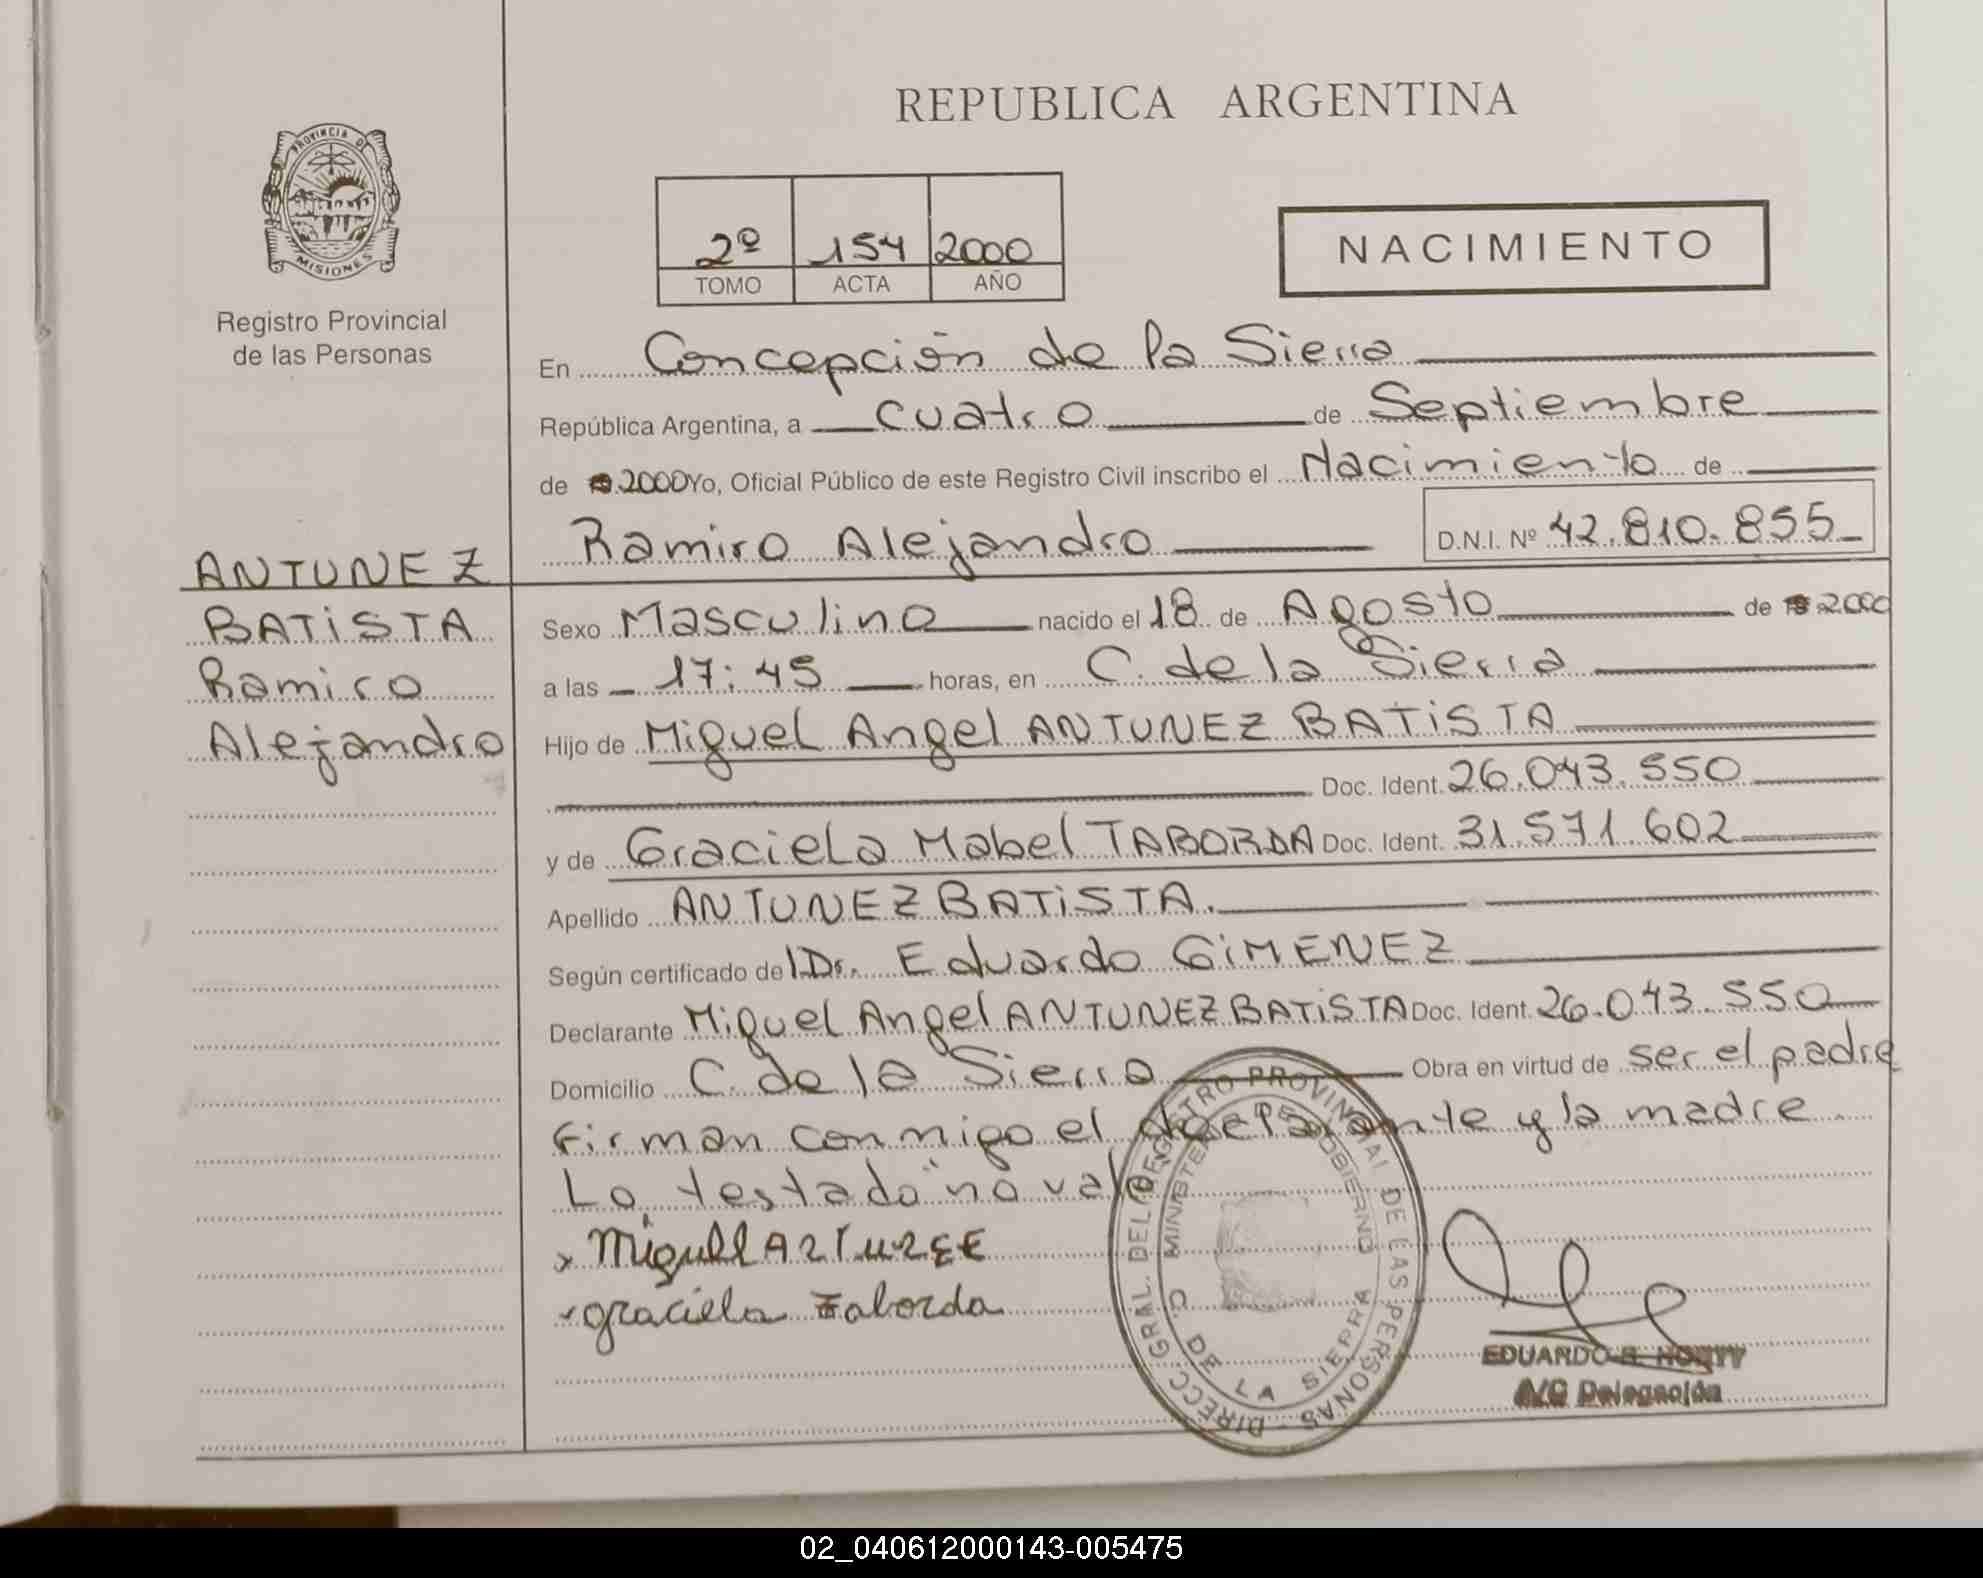 PROVINCIA DE
MISIONES
Registro Provincial
de las Personas
ANTUNEZ
BATISTA
Ramiro
Alejandro
REPUBLICA ARGENTINA
2º 154 2000
TOMO ACTA AÑO
NACIMIENTO
En Concepción de la Sierra
República Argentina, a cuatro de Septiembre
de 2000 Yo, Oficial Público de este Registro Civil inscribo el Nacimiento de
Ramiro Alejandro D.N.I. Nº 42.810.855
Sexo Masculino nacido el 18 de Agosto de 2000
a las 17:45 horas, en C. de la Sierra
Hijo de Miguel Angel ANTUNEZ BATISTA
Doc. Ident. 26.043.550
y de Graciela Mabel TABORDA Doc. Ident. 31.571.602
Apellido ANTUNEZ BATISTA.
Según certificado del Dr. Eduardo GIMENEZ
Declarante Miguel Angel ANTUNEZ BATISTA Doc. Ident. 26.043.550
Domicilio C. de la Sierra Obra en virtud de ser el padre
Firman conmigo el declarante y la madre
Lo testado no vale
graciela taborda
DIRECC. GRAL. DEL REGISTRO PROVINCIAL DE LAS PERSONAS
C. DE LA SIERRA
EDUARDO
A/C Delegación
02_040612000143-005475